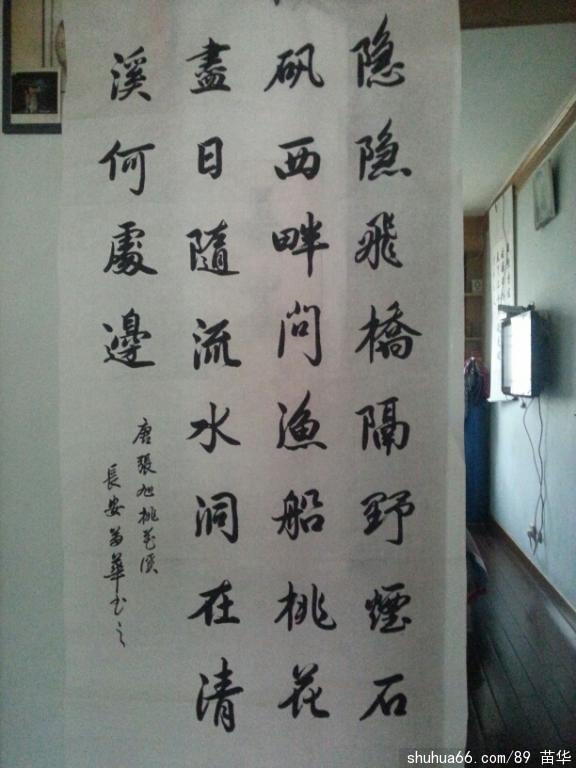 隐隐飛橋隔野煙石
矶西畔问漁船桃花
盡日隨流水洞在清
溪何處邊
唐張旭桃花溪
長安苗華书之
shuhua66.com/89 苗华